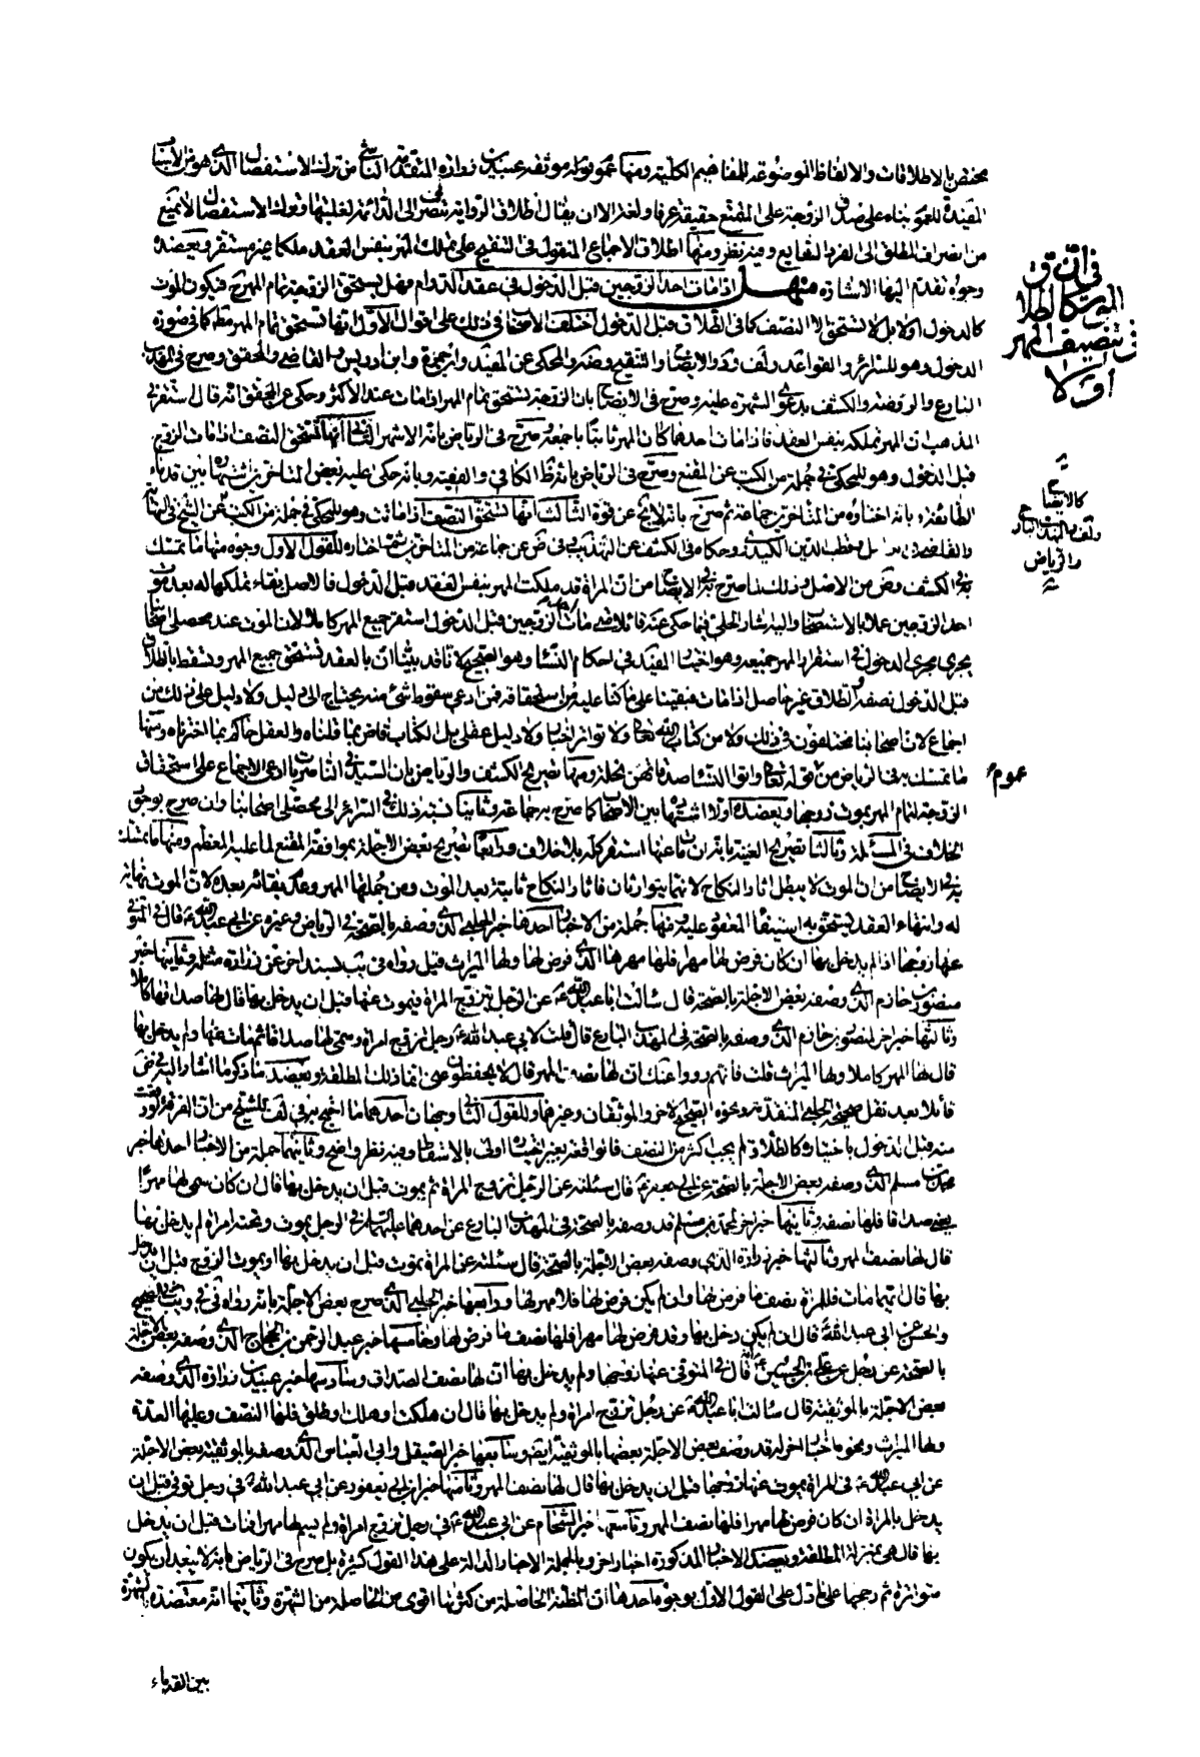 مختص بالاطلاقات والالفاظ الموضوعة للمفاهيم الكلية ومنها عموم قوله موثقة عبيد بن زرارة المتقدمة الناشئ من ترك الاستفصال الذي هو من الاسباب
المفيدة للعموم بناء على صدق الزوجة على المتمتع حقيقة عرفا ولغة الا ان يقال اطلاق الرواية ينصرف الى الدائمة لغلبتها وترك الاستفصال لا يمنع
من انصراف المطلق الى الفرد الشايع وفيه نظر ومنها اطلاق الاجماع المنقول في التنقيح على تملك المهر بنفس العقد ملكا غير مستقر ويعضده
وجوه تقدم اليها الاشارة منهل اذا مات احد الزوجين قبل الدخول في عقد الدوام فهل يستحق الزوجة تمام المهر فيكون الموت
كالدخول او لا بل لا تستحق الا النصف كما في الطلاق قبل الدخول اختلف الاصحاب في ذلك على اقوال الاول انها تستحق تمام المهر مط كما في صورة
الدخول وهو للشرائع والقواعد ولف وعد والايضاح والتنقيح وضه والمحكي عن المفيد وابن حمزة وابن ادريس والقاضي والمحقق وصرح في المهذب
البارع والروضة والكشف بدعوى الشهرة عليه وصرح في الايضاح بان الزوجة تستحق تمام المهر اذا مات عند الاكثر وحكى عن المحقق انه قال استقر في
المذهب ان المهر تملكه بنفس العقد فاذا مات احدهما كان المهر ثابتا باجمعه وصرح في الرياض بانه الاشهر الثاني انها تستحق النصف اذا مات الزوج
قبل الدخول وهو للمحكي في جملة من الكتب عن المقنع وصرح في الرياض بانه ظ الكافي والفقيه وبانه حكى عليه بعض المتاخرين الشهرة بين قدماء
الطائفة وبانه اختاره من المتاخرين جماعة ثم صرح بانه لا يخ عن قوة الثالث انها تستحق النصف اذا ماتت وهو للمحكي في جملة من الكتب عن الشيخ في النهاية
والقاضي وقطب الدين الكيدري وحكاه في الكشف عن المهذب وفي ض عن جماعة من المتاخرين اختاره للقول الاول وجوه منها ما تمسك
به في الكشف وض من الاصل وذلك لما صرح به في الايضاح من ان المراة قد ملكت المهر بنفس العقد قبل الدخول فالاصل بقاء تملكها له بعد موت
احد الزوجين عملا بالاستصحاب واليه اشار الحلي فيما حكي عنه قائلا متى مات احد الزوجين قبل الدخول استقر جميع المهر كاملا لان الموت عند محصلي اصحابنا
يجري مجرى الدخول في استقرار المهر جميعه وهو اختيار المفيد في احكام النساء وهو الصحيح لانا قد بينا ان بالعقد تستحق جميع المهر ويسقط بالطلاق
قبل الدخول نصفه والطلاق غير حاصل اذا مات فبقينا على ما كنا عليه من استحقاقه فمن ادعى سقوط شئ منه يحتاج الى دليل ولا دليل على ذلك من
اجماع لان اصحابنا مختلفون في ذلك ولا من كتاب الله تعالى ولا تواتر اخبار ولا دليل عقلي بل الكتاب قاض بما قلناه والعقل حاكم بما اخترناه ومنها
ما تمسك به في الرياض من عموم قوله تعالى واتوا النساء صدقاتهن نحلة ومنها تصريح الكشف والرياض بان السيد في الناصريات ادعى الاجماع على استحقاق
الزوجة لتمام المهر بموت زوجها ويعضده اولا اشتهاره بين الاصحاب كما صرح به جماعة وثانيا نسبته ذلك في السرائر الى محصلي اصحابنا وان صرح بوجود
الخلاف في المسئلة وثالثا تصريح الغنية بانه ان مات عنها استقر كله بلا خلاف ورابعا تصريح بعض الاجلة بموافقة المقنع لما عليه المعظم ومنها ما تمسك
به في الايضاح من ان الموت لا يبطل اثار النكاح لانهما يتوارثان فاثار النكاح ثابتة بعد الموت ومن جملتها المهر وعدم بقائه بعده لان الموت نهاية
له وانتهاء العقد يستحق به استيفاء المعقود عليه ومنها جملة من الاخبار احدها خبر الحلبي الذي وصفه بالصحة في الرياض وغيره عن ابي عبد الله ع قال في المتوفى
عنها زوجها اذا لم يدخل بها ان كان فرض لها مهرا فلها مهرها الذي فرض لها ولها الميراث قيل رواه في يب بسند اخر عن زرارة مثله وثانيها خبر
منصور بن حازم الذي وصفه بعض الاجلة بالصحة قال سالت ابا عبد الله ع عن الرجل يتزوج المراة فيموت عنها قبل ان يدخل بها قال لها صداقها كاملا
وثالثها خبر اخر لمنصور بن حازم الذي وصفه بالصحة في المهذب البارع قال قلت لابي عبد الله ع رجل تزوج امراة وسمى لها صداقا ثم مات عنها ولم يدخل بها
قال لها المهر كاملا ولها الميراث قلت فانهم رووا عنك ان لها نصف المهر قال لا يحفظون عني انما ذلك المطلقة ويعضد ما ذكرنا اشار اليه في ض
قائلا بعد نقل صحيحة الحلبي المتقدمة ونحوه الصحيح الاخر والموثقان وغيرها وللقول الثاني وجهان احدهما ما احتج به في لف للشيخ من ان الفرقة وقعت
منه قبل الدخول باختياره كالطلاق لم يجب اكثر من النصف فالواقعة بغير اختياره اولى بالاسقاط وفيه نظر واضح وثانيهما جملة من الاخبار احدها خبر
محمد بن مسلم الذي وصفه بعض الاجلة بالصحة عن ابي جعفر ع قال سئلته عن الرجل تزوج المراة ثم يموت قبل ان يدخل بها قال ان كان سمى لها مهرا
يعني صداقا فلها نصفه وثانيها خبر اخر لمحمد بن مسلم قد وصفه بالصحة في المهذب البارع عن احدهما عليهما السلام في الرجل يموت وتحته امراة لم يدخل بها
قال لها نصف المهر وثالثها خبر زرارة الذي وصفه بعض الاجلة بالصحة قال سئلته عن المراة تموت قبل ان يدخل بها او يموت الزوج قبل ان يدخل
بها قال ايهما مات فللمراة نصف ما فرض لها وان لم يكن فرض لها فلا مهر لها ورابعها خبر الحلبي الذي صرح بعض الاجلة بانه رواه في في ويب في الصحيح
والحسن عن ابي عبد الله ع قال ان لم يكن دخل بها وقد فرض لها مهرا فلها نصف ما فرض لها وخامسها خبر عبد الرحمن بن الحجاج الذي وصفه بعض الاجلة
بالصحة عن رجل عن علي بن الحسين ع انه قال في المتوفى عنها زوجها ولم يدخل بها ان لها نصف الصداق وسادسها خبر عبيد بن زرارة الذي وصفه
بعض الاجلة بالموثقية قال سالت ابا عبد الله ع عن رجل تزوج امراة ولم يدخل بها قال ان هلكت او هلك او طلق فلها النصف وعليها العدة
ولها الميراث ونحوها اخبار اخر له قد وصف بعض الاجلة بعضها بالموثقية ايضا وسابعها خبر الصيقل وابي العباس الذي وصفه بالموثقية بعض الاجلة
عن ابي عبد الله ع في المراة يموت عنها زوجها قبل ان يدخل بها قال لها نصف المهر وثامنها خبر ابن ابي يعفور عن ابي عبد الله ع في رجل توفي قبل ان
يدخل بالمراة ان كان فرض لها مهرا فلها نصف المهر وتاسعها خبر الشحام عن ابي عبد الله ع في رجل تزوج امراة ولم يسم لها مهرا فمات قبل ان يدخل
بها قال هي بمنزلة المطلقة ويعضد الاخبار المذكورة اخبار اخر وبالجملة الاخبار الدالة على هذا القول كثيرة بل صرح في الرياض بانه لا يبعد ان يكون
متواترة ثم رجحها على ما دل على القول الاول بوجوه احدها ان المظنة الحاصلة من كثرتها اقوى من الحاصلة من الشهرة وثانيها انه معتضدة بالشهرة
بين القدماء
في ان
الموت كالطلاق
في تنصيف المهر
او لا
كالايضاح
ولف والمهذب البارع
والرياض
عموم